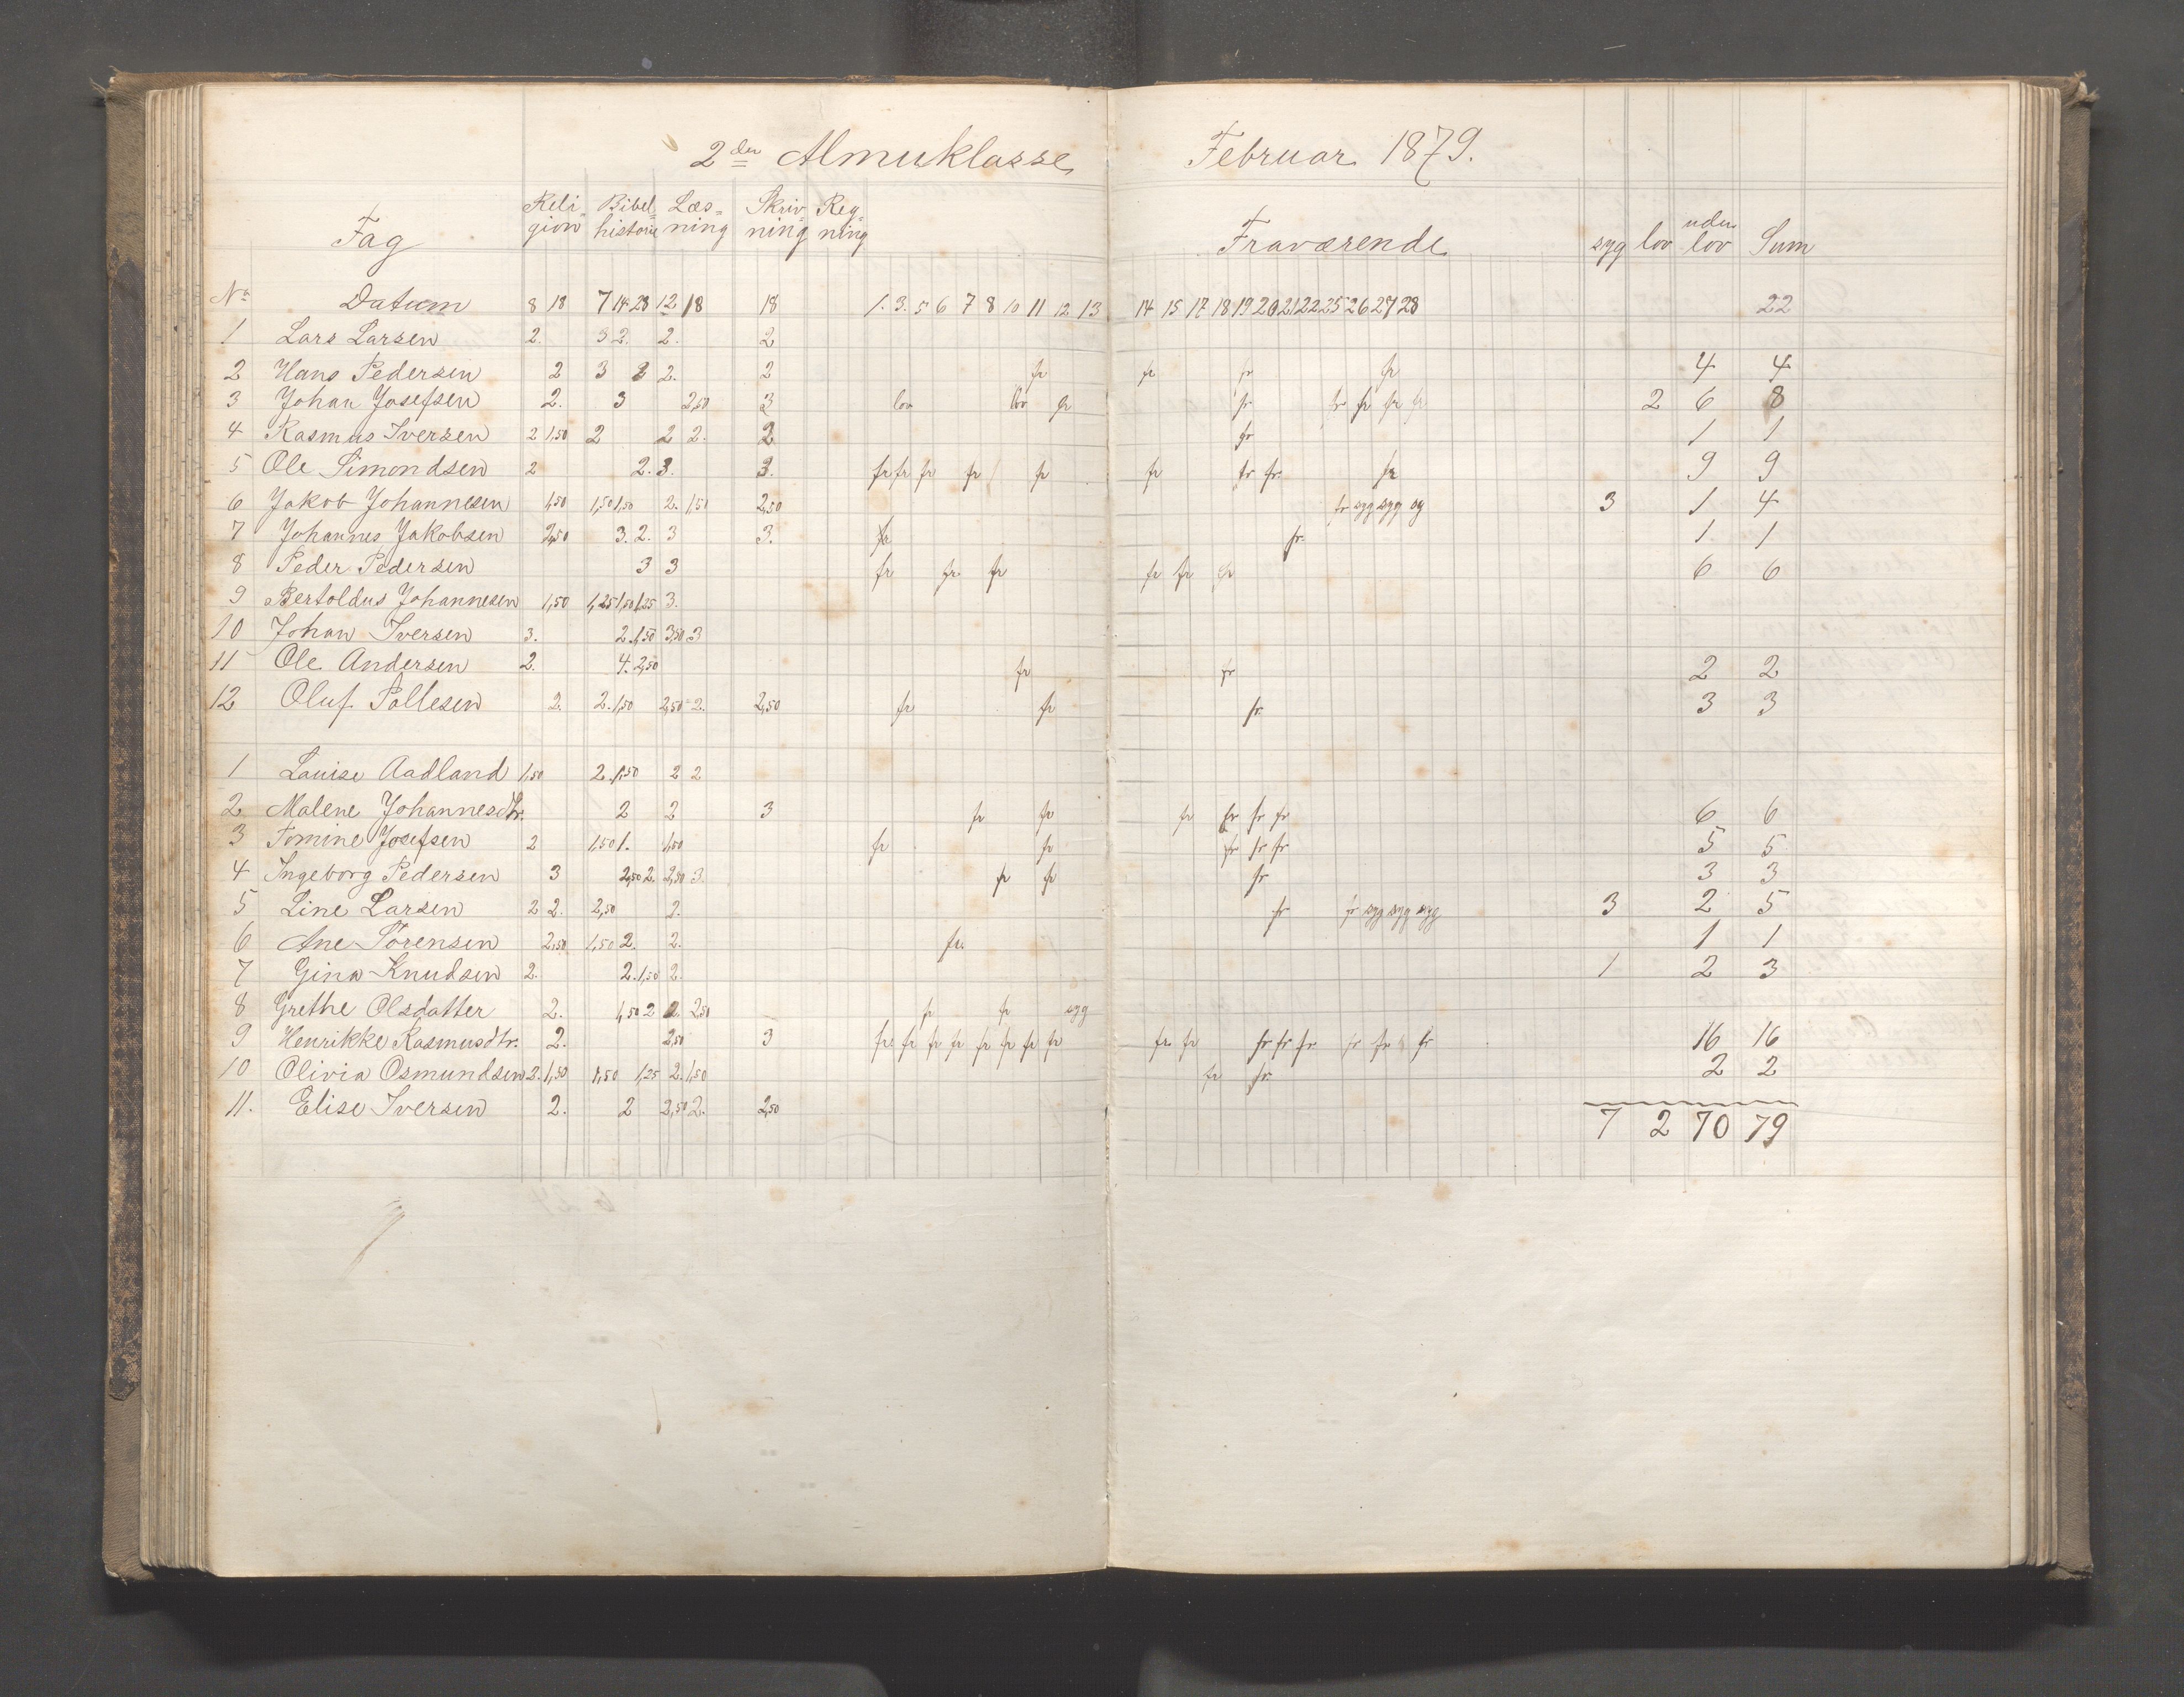 2den Almuklasse Februar 1879.
Fag Religion Bibelhistorie Læsning Skrivning Regning Fraværende syg lov uden lov Sum
No Datum 8 18 7 14 28 12 18 18 1. 3. 5 6 7 8 10 11 12 13 14 15 17 18 19 20 21 22 25 26 27 28 22
1 Lars Larsen 2. 3 2. 2. 2
2 Hans Pedersen 2 3 3 2. 2 fr fr fr fr 4 4
3 Johan Josefsen 2. 3 2,50 3 lov lov fr fr fr fr fr fr 2 6 8
4 Rasmus Iversen 2 1,50 2 2 2. 2 fr 1 1
5 Ole Simondsen 2 2. 3. 3. fr fr fr fr fr fr fr fr fr 9 9
6 Jakob Johannesen 1,50 1,50 1,50 2. 1,50 2,50 fr syg syg sy 3 1 4
7 Johannes Jakobsen 2,50 3. 2. 3 3. fr. 1 1
8 Peder Pedersen 3 3 fr fr fr fr fr fr 6 6
9 Bertoldus Johannesen 1,50 1,25 1,50 1,25 3.
10 Johan Iversen 3. 2. 1,50 3,50 3
11 Ole Andersen 2. 4. 2,50 fr fr 2 2
12 Oluf Pallesen 2. 2. 1,50 2,50 2. 2,50 fr fr fr 3 3
1 Lauise Aadland 1,50 2. 1,50 2 2
2 Malene Johannesdtr. 2 2 3 fr fr fr fr fr fr 6 6
3 Tomine Josefsen 2 1,50 1. 1,50 fr fr fr fr fr 5 5
4 Ingeborg Pedersen 3 2,50 2. 2,50 3. fr fr fr 3 3
5 Line Larsen 2 2. 2,50 2. fr fr syg syg syg 3 2 5
6 Ane Sørensen 2,50 1,50 2. 2. fr. 1 1
7 Gina Knudsen 2. 2. 1,50 2. 1 2 3
8 Grethe Olsdatter 2. 1,50 2 2. 2,50 fr fr syg
9 Henrikke Rasmusdtr. 2. 2,50 3 fr fr fr fr fr fr fr fr fr fr fr fr fr fr fr fr 16 16
10 Olivia Osmundsen 2. 1,50 1,50 1,25 2. 1,50 fr fr. 2 2
11. Elise Iversen 2. 2 2,50 2. 2,50
7 2 70 79